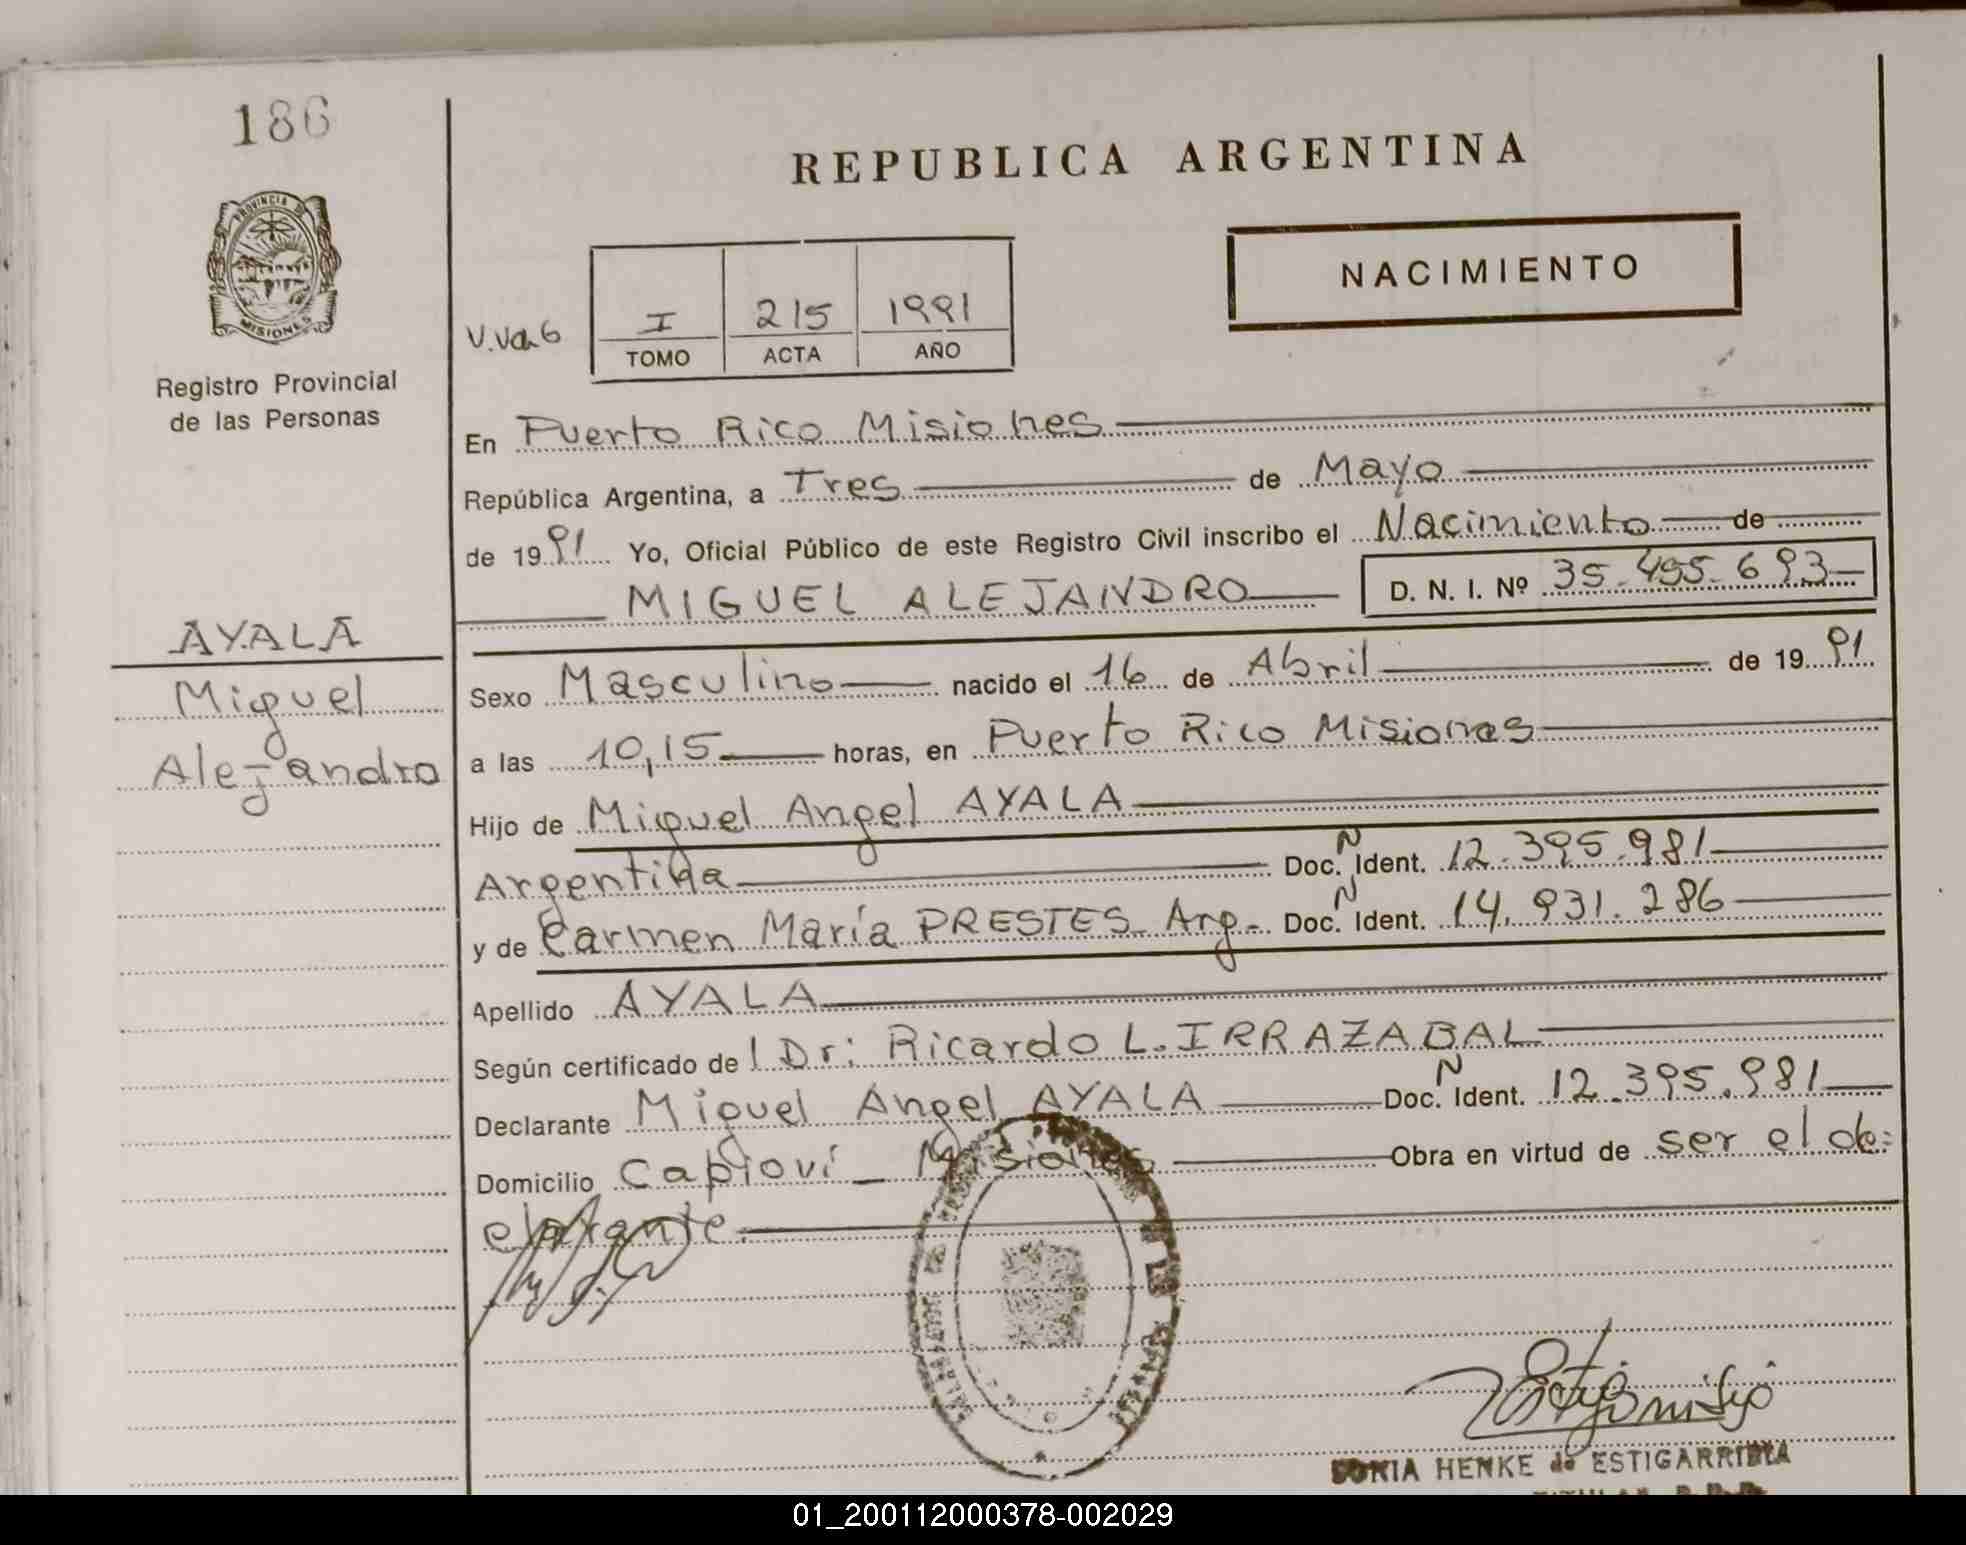 186
PROVINCIA DE
MISIONES
Registro Provincial
de las Personas
REPUBLICA ARGENTINA
NACIMIENTO
V.Va.6
I 215 1991
TOMO ACTA AÑO
En Puerto Rico Misiones
República Argentina, a Tres de Mayo
de 1991 Yo, Oficial Público de este Registro Civil inscribo el Nacimiento de
MIGUEL ALEJANDRO D. N. I. Nº 35.455.693
AYALA
Miguel
Alejandro
Sexo Masculino nacido el 16 de Abril de 1991
a las 10,15 horas, en Puerto Rico Misiones
Hijo de Miguel Angel AYALA
Argentina Doc. N Ident. 12.395.981
y de Carmen María PRESTES Arg. Doc. N Ident. 14.931.286
Apellido AYALA
Según certificado del Dr: Ricardo L. IRRAZABAL
Declarante Miguel Angel AYALA Doc. N Ident. 12.395.981
Domicilio Capioví _ Misiones Obra en virtud de ser el de=
clarante.
SONIA HENKE de ESTIGARRIBIA
01_200112000378-002029